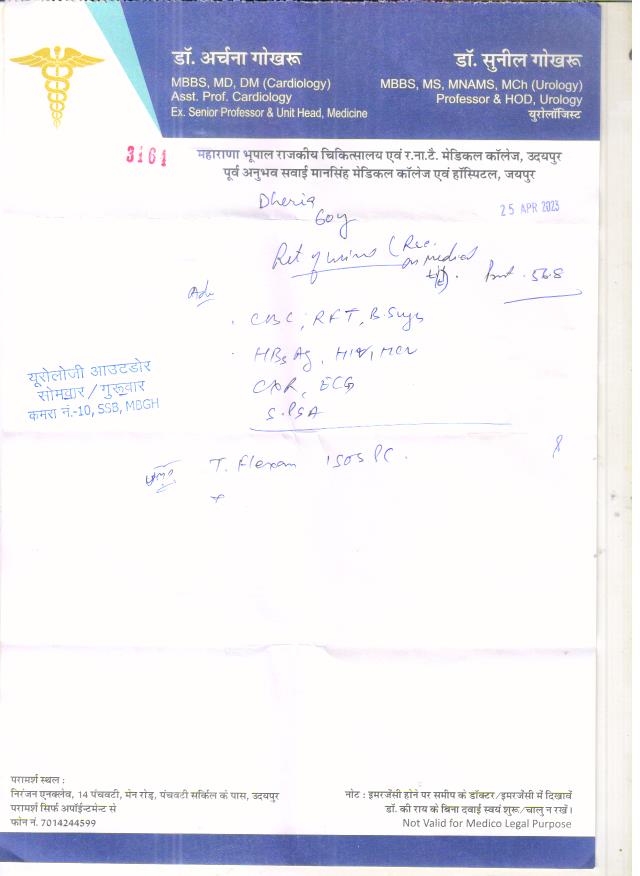 डॉ. अर्चना गोखरू
MBBS, MD, DM (Cardiology)
Asst. Prof. Cardiology
Ex. Senior Professor & Unit Head, Medicine
डॉ. सुनील गोखरू
MBBS, MS, MNAMS, MCh (Urology)
Professor & HOD, Urology
यूरोलॉजिस्ट
3161
महाराणा भूपाल राजकीय चिकित्सालय एवं र.ना.टै. मेडिकल कॉलेज, उदयपुर
पूर्व अनुभव सवाई मानसिंह मेडिकल कॉलेज एवं हॉस्पिटल, जयपुर
25 APR 2023
Ret of urine (Rec.
on medical
Adv
CBC, RFT, B. Sugs
HBsAg, HIV, HCV
CXR, ECG
S. PSA
यूरोलोजी आउटडोर
सोमवार / गुरूवार
कमरा नं.-10, SSB, MBGH
परामर्श स्थल :
निरंजन एनक्लेव, 14 पंचवटी, मेन रोड़, पंचवटी सर्किल के पास, उदयपुर
परामर्श सिर्फ अपॉईन्टमेन्ट से
फोन नं. 7014244599
नोट : इमरजेंसी होने पर समीप के डॉक्टर/इमरजेंसी में दिखावें
डॉ. की राय के बिना दवाई स्वयं शुरू/चालु न रखें।
Not Valid for Medico Legal Purpose